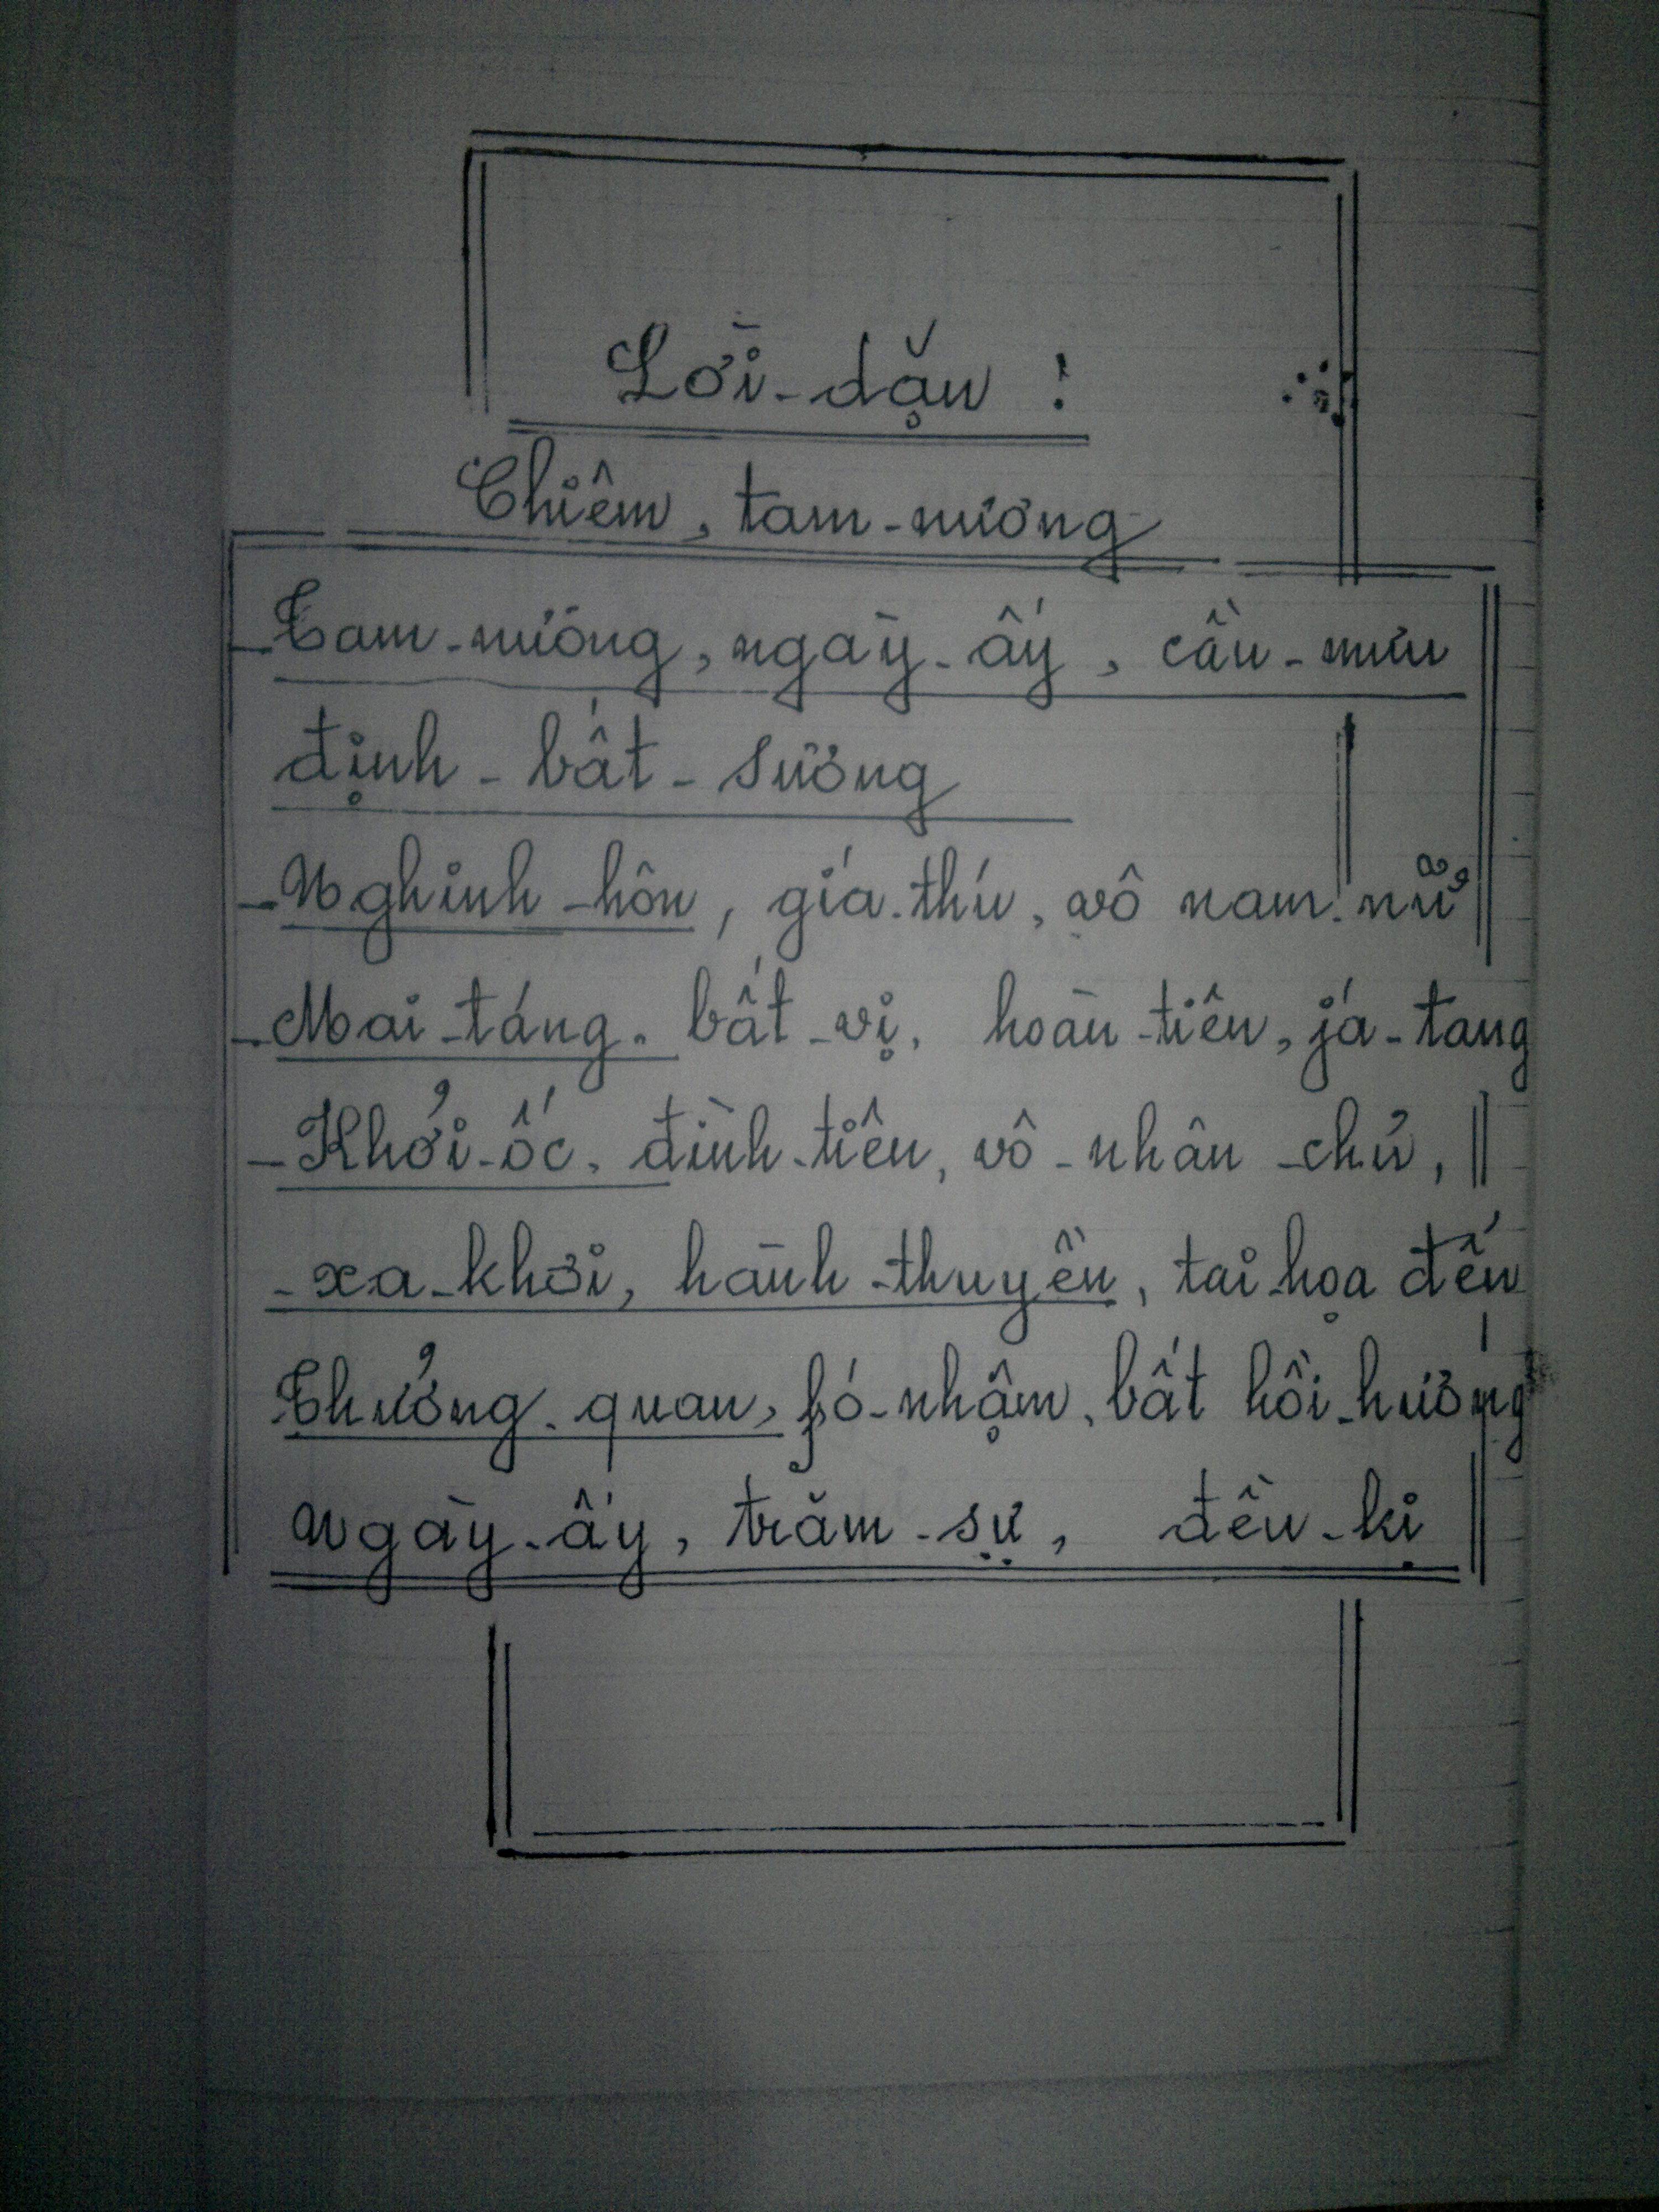 Lời-dặn :
Chiêm, tam-nương
-Tam-nương, ngày-ấy, cầu-mưu
định-bất-sương
-Nghinh-hôn, giá.thú, vô nam.nữ
-Mai-táng. bất-vị. hoàn-tiên, já-tang
-Khởi-ốc. đình-tiên, vô-nhân-chủ,
-xa-khơi, hành-thuyền, tai-hoạ đến
Thưởng.quan, fó-nhậm, bất hồi-hương
Ngày-ấy, trăm-sự, đều-kị